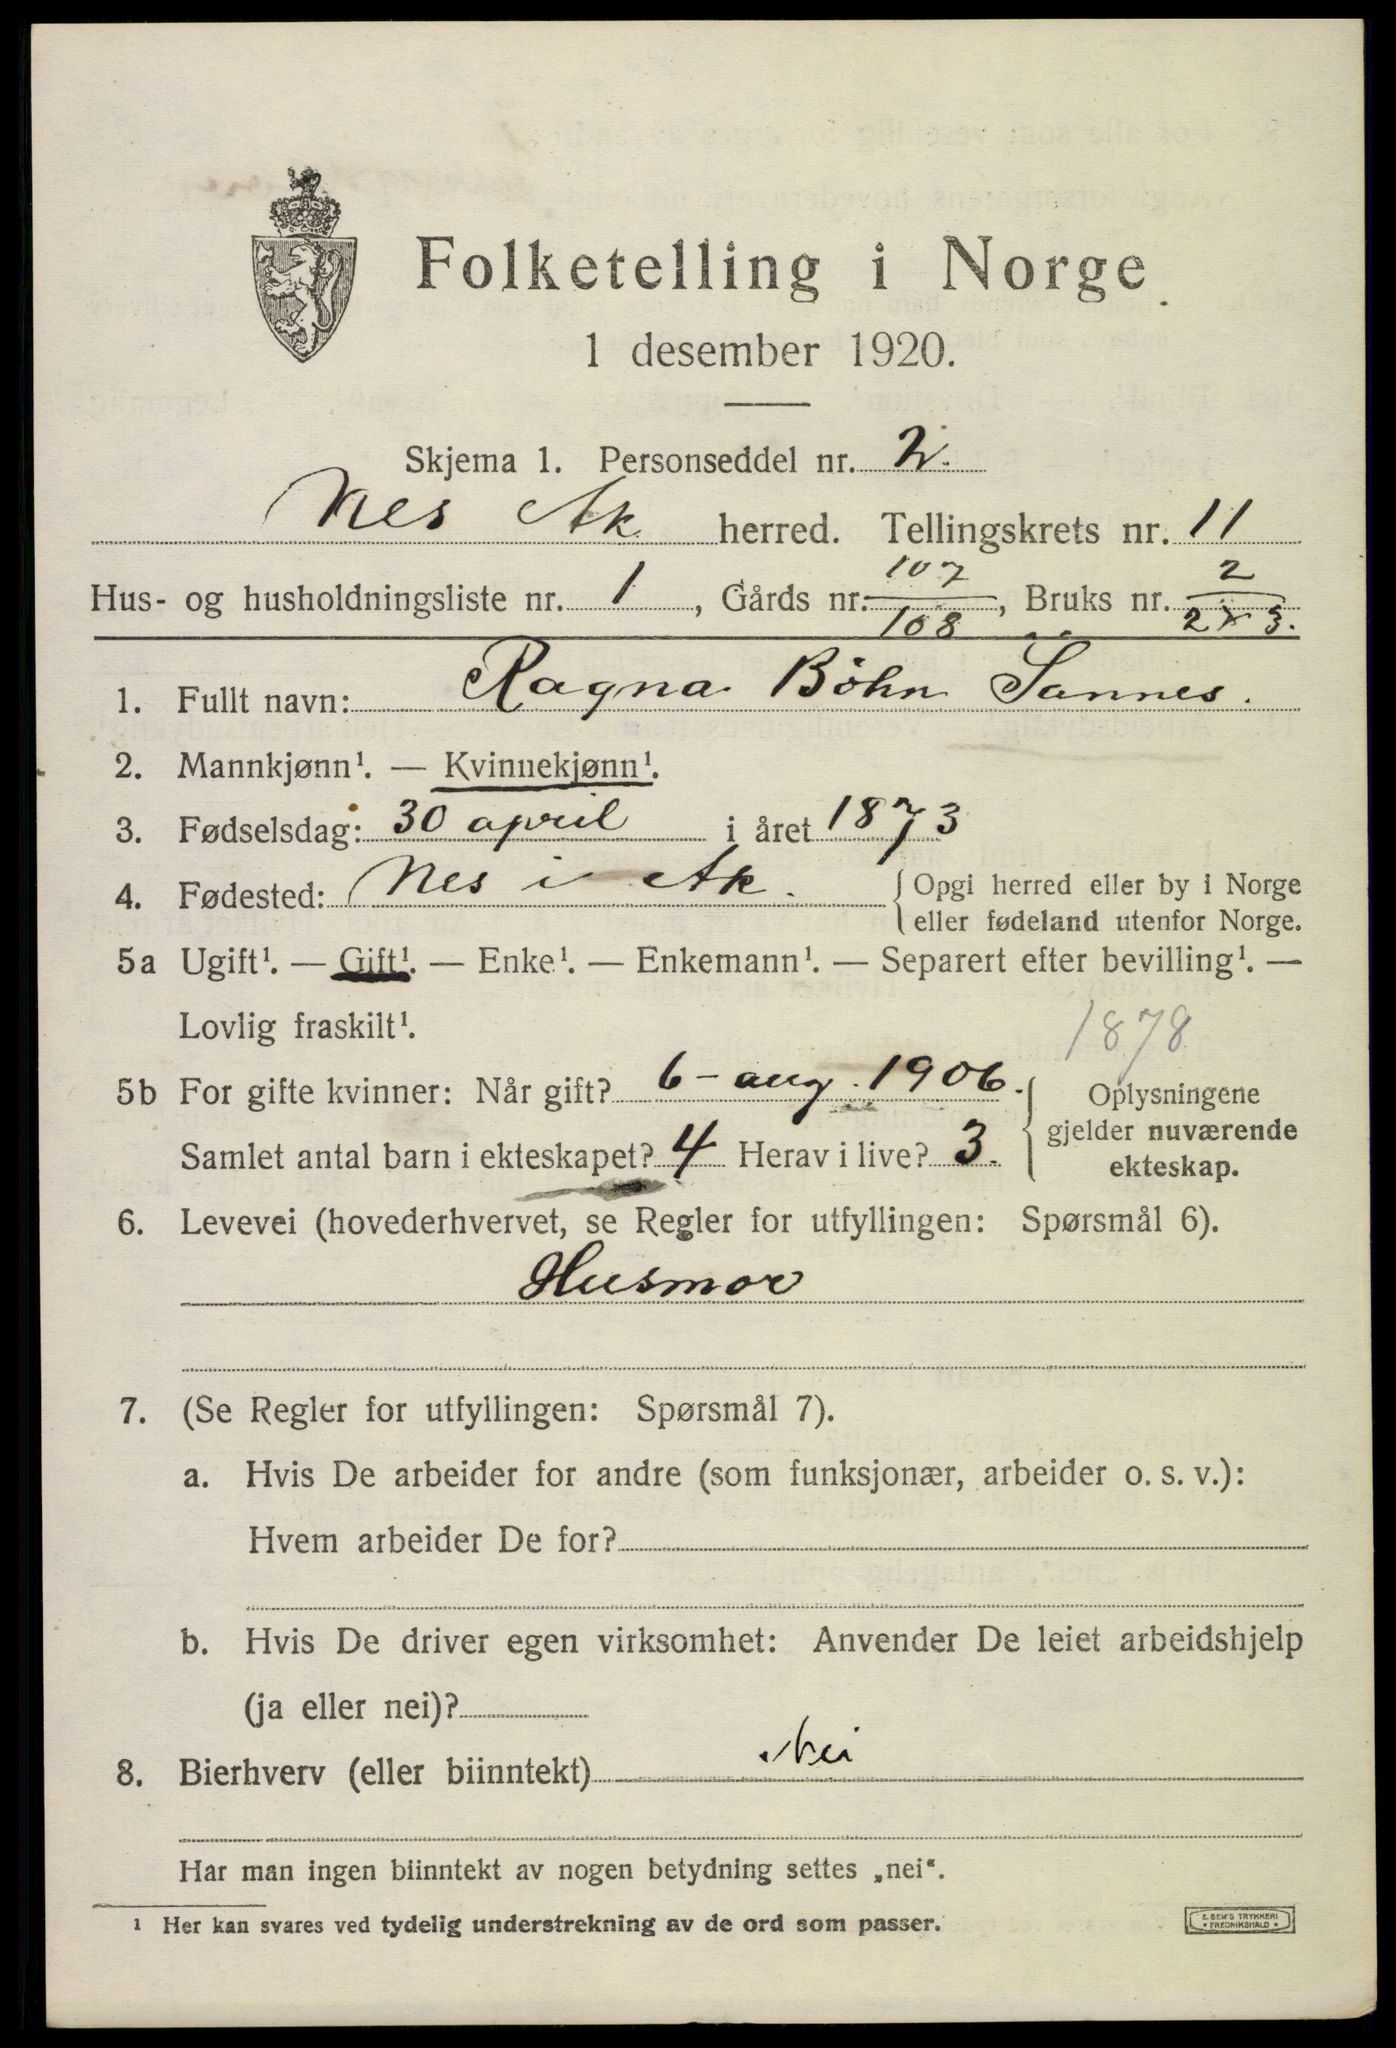 Folketelling i Norge
1 desember 1920.
Skjema 1. Personseddel nr. 2.
Nes Ak. herred. Tellingskrets nr. 11
107 2
Hus- og husholdningsliste nr. 1, Gårds nr. , Bruks nr.
108 2 3.
1. Fullt navn: Ragna Böhn Sannes.
2. Mannkjønn¹. — Kvinnekjønn¹.
3. Fødselsdag: 30 april i året 1873
4. Fødested: Nes i Ak. { Opgi herred eller by i Norge
eller fødeland utenfor Norge.
5a Ugift¹. — Gift¹. — Enke¹. — Enkemann¹. — Separert efter bevilling¹. —
Lovlig fraskilt¹.
1878
5b For gifte kvinner: Når gift? 6 - aug. 1906. { Oplysningene
gjelder nuværende
Samlet antal barn i ekteskapet? 4 Herav i live? 3. ekteskap.
6. Levevei (hovederhvervet, se Regler for utfyllingen: Spørsmål 6).
Husmor
7. (Se Regler for utfyllingen: Spørsmål 7).
a. Hvis De arbeider for andre (som funksjonær, arbeider o. s. v.):
Hvem arbeider De for?
b. Hvis De driver egen virksomhet: Anvender De leiet arbeidshjelp
(ja eller nei)?
8. Bierhverv (eller biinntekt) Nei
Har man ingen biinntekt av nogen betydning settes „nei“.
¹ Her kan svares ved tydelig understrekning av de ord som passer.
E. SEM'S TRYKKERI
* FREDRIKSHALD *